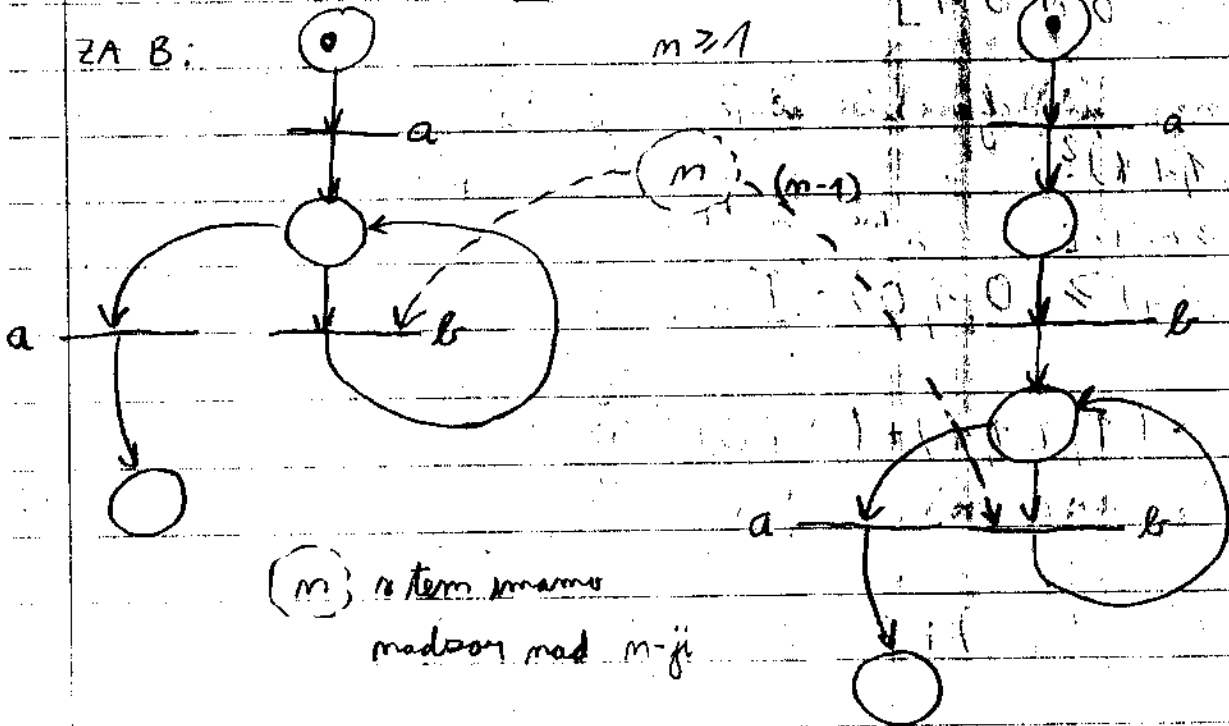 ZA B:
n ≥ 1
a
a
n
(n-1)
a
b
b
a
b
n s tem imamo
nadzor nad n-ji